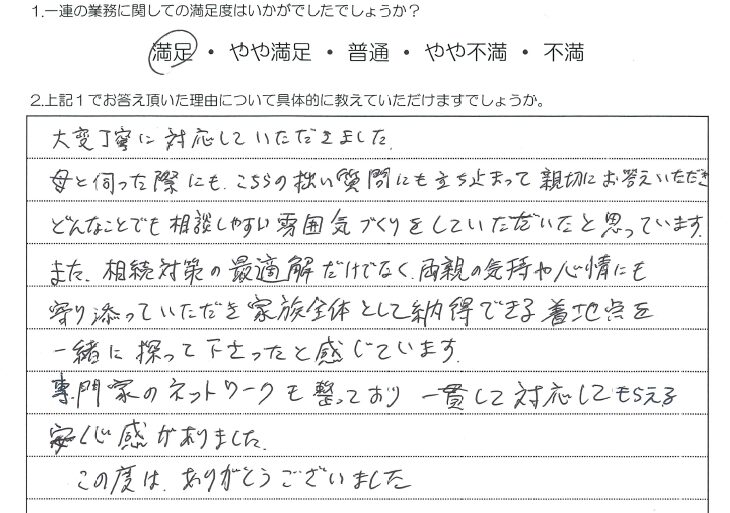 1.一連の業務に関しての満足度はいかがでしたでしょうか？
満足 ・ やや満足 ・ 普通 ・ やや不満 ・ 不満
2.上記１でお答え頂いた理由について具体的に教えていただけますでしょうか。
大変丁寧に対応していただきました.
母と伺った際にも、こちらの拙い質問にも立ち止まって親切にお答えいただき
どんなことでも相談しやすい雰囲気づくりをしていただいたと思っています.
また、相続対策の最適解だけでなく、両親の気持や心情にも
寄り添っていただき家族全体として納得できる着地点を
一緒に探って下さったと感じています.
専門家のネットワークも整っており 一貫して対応してもらえる
安心感がありました.
この度は、ありがとうございました